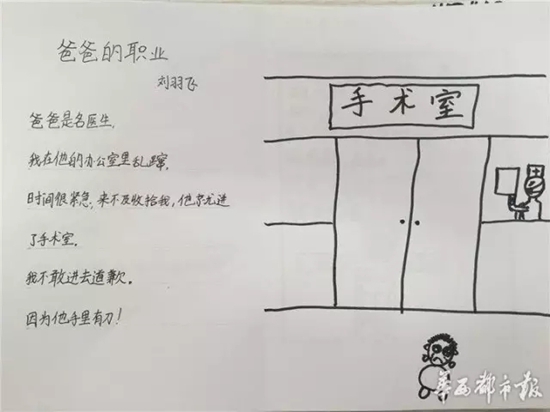 爸爸的职业
刘羽飞
爸爸是名医生,
我在他的办公室里乱蹿,
时间很紧急,来不及收拾我,他就进
了手术室,
我不敢进去道歉,
因为他手里有刀!
手术室
华西都市报